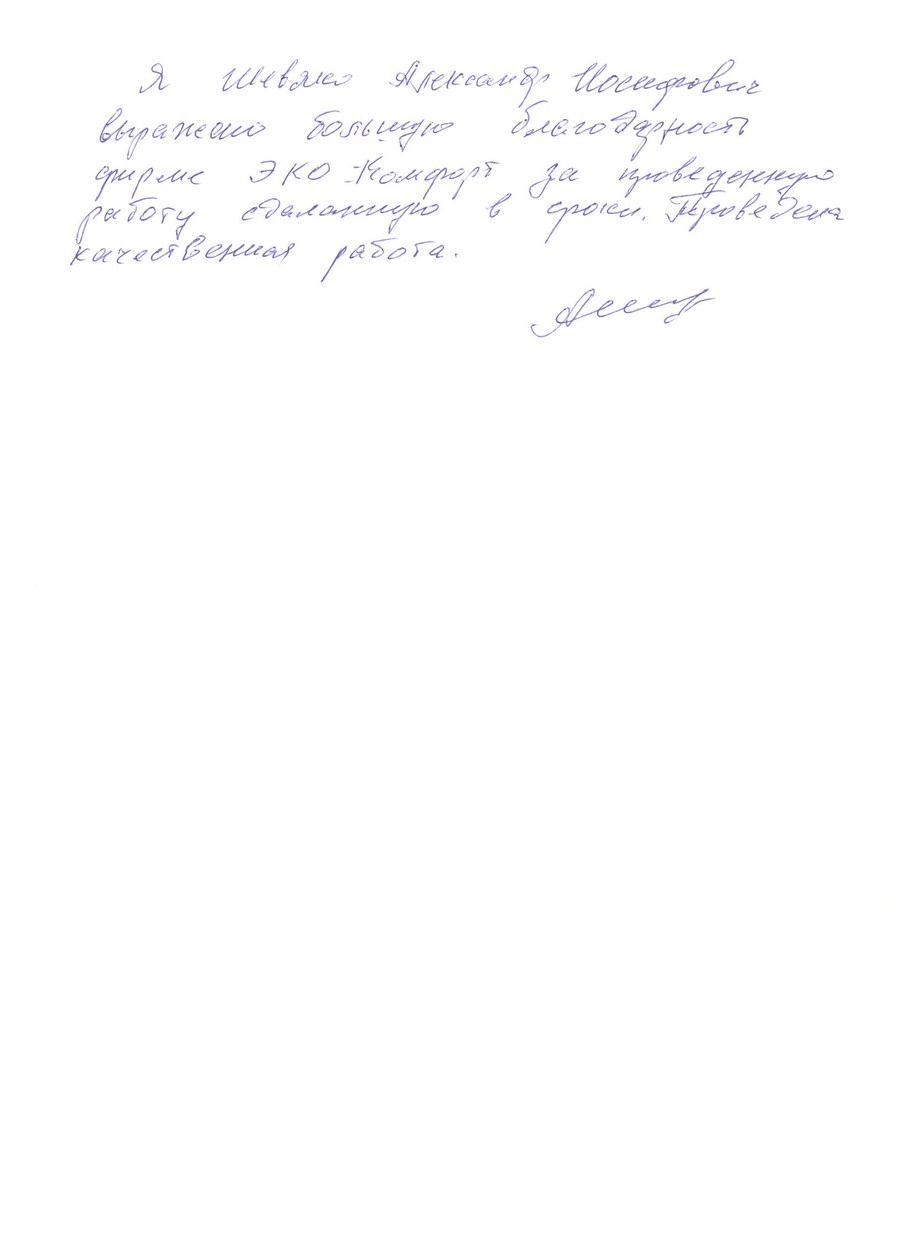 Я Шевяко Александр Иосифович
выражаю большую благодарность
фирме ЭКО-Комфорт за проведенную
работу сдаланную в сроки. Проведена
качественная работа.